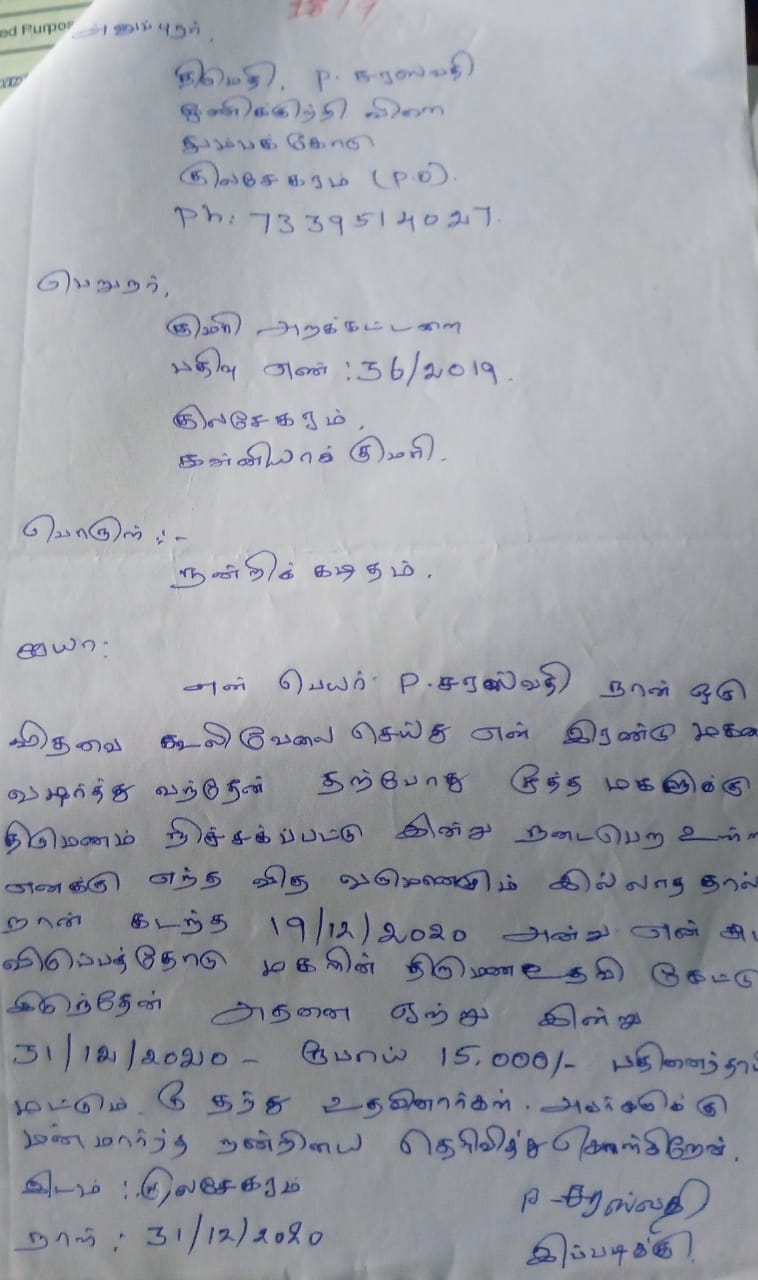 ed Purpos
18/9
அனுப்புநர்,
திருமதி. P. சரஸ்வதி
விளை
குலசேகரம் (P.O).
Ph: 7339514027.
பெறுநர்,
குமரி அறக்கட்டளை
பதிவு எண் : 36/2019.
குலசேகரம்,
கன்னியாக் குமரி.
பொருள் :-
நன்றிக் கடிதம்.
ஐயா:
என் பெயர் P. சரஸ்வதி நான் ஒரு
விதவை கூலி வேலை செய்து என் இரண்டு மகளை
வளர்த்து வந்தேன் தற்போது மூத்த மகளுக்கு
திருமணம் நிச்சகப்பட்டு இன்று நடைபெற உள்ள
எனக்கு எந்த வித வருமானமும் இல்லாத தால்
நான் கடந்த 19/12/2020 அன்று என்
விருப்பத்தோடு மகளின் திருமண உதவி கேட்டு
இருந்தேன் அதனை ஏற்று இன்று
31/12/2020 - ரூபாய் 15.000/- பதினைந்தாயி
மட்டும். தந்து உதவினார்கள். அவர்களுக்கு
மன மார்ந்த நன்றியை தெரிவித்து கொள்கிறேன்.
இடம் : குலசேகரம்
நாள் : 31/12/2020
P - சரஸ்வதி
இப்படிக்கு